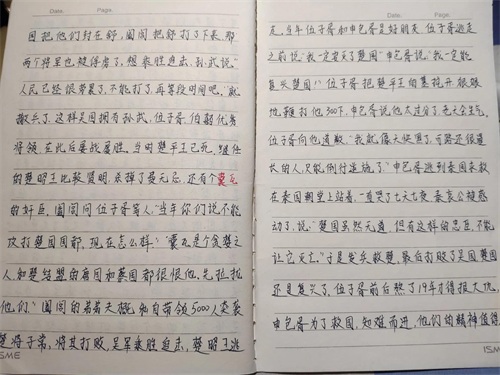 Date. Page.
因把他们封在舒，阖闾把舒打了下来，那
两个将军也被俘虏了，想乘胜追击，孙武说"
人民已经很劳累了，不能打了，再等段时间吧，"就
撤兵了，这样吴国拥有孙武，伍子胥，伯嚭优秀
将领，在此后屡战屡胜，当时楚平王已死，继任
的楚昭王比较贤明，杀掉了费无忌，还有个囊瓦
的奸臣，阖闾问伍子胥等人，"当年你们说不能
攻打楚国国都，现在怎么样？""囊瓦是个贪婪之
人，和楚结盟的唐国和蔡国都很恨他，先拉拢
他们，"阖闾的弟弟夫概，私自带领5000人突袭
楚将子常，将其打败，吴军乘胜追击，楚昭王逃
ISME
Date. Page.
走，当年伍子胥和申包胥是好朋友，伍子胥逃走
之前说："我一定灭了楚国"申包胥说，"我一定能
复兴楚国！"伍子胥把楚平王的墓掘开，狠狠
地鞭打他300下，申包胥说他太过分了，老天会生气，
伍子胥向他道歉，"我就像天快黑了，可路还很漫
长的人，只能倒行逆施了"申包胥逃到秦国求救
在秦国朝堂上站着，一直哭了七天七夜，秦哀公被感
动了，说："楚国虽然无道，但有这样的忠臣，不能
让它灭亡，"于是发兵救楚，最后打败了吴国，楚国
还是复兴了，伍子胥前后熬了19年才得报大仇，
申包胥为了救国，知难而进，他们的精神值得
ISME